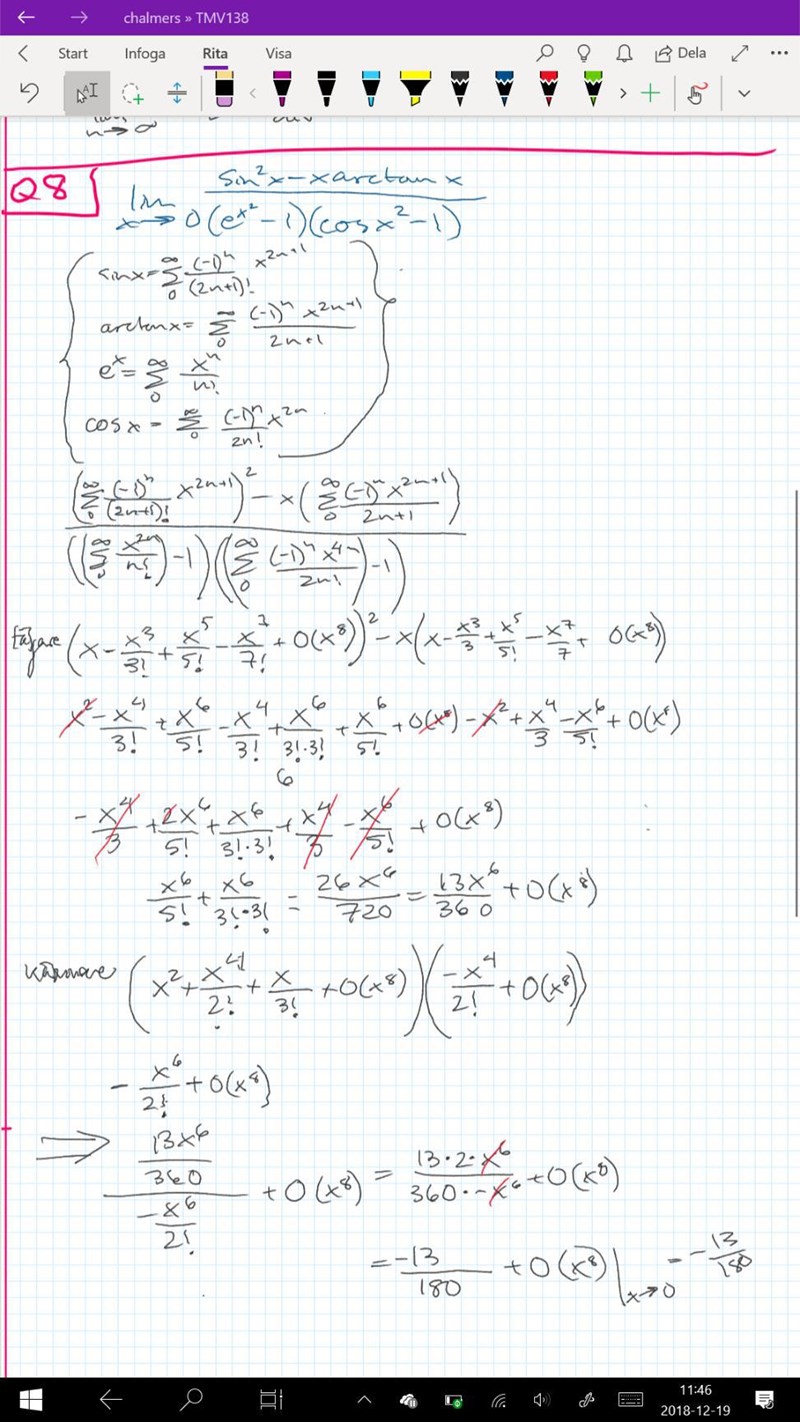 chalmers » TMV138
Start Infoga Rita Visa Dela
n→∞
Q8
lim x→0 (sin²x - x arctan x)/((e^(x²) - 1)(cos x² - 1))
sinx = Σ₀^∞ (-1)^n/(2n+1)! x^(2n+1)
arctanx = Σ₀^∞ (-1)^n x^(2n+1)/(2n+1)
e^x = Σ₀^∞ x^n/n!
cosx = Σ₀^∞ (-1)^n/2n! x^(2n)
((Σ₀^∞ (-1)^n/(2n+1)! x^(2n+1))² - x(Σ₀^∞ (-1)^n x^(2n+1)/(2n+1)))/(((Σ₀^∞ x^(2n)/n!) - 1)((Σ₀^∞ (-1)^n x^(4n)/2n!) - 1))
(x - x³/3! + x⁵/5! - x⁷/7! + O(x⁸))² - x(x - x³/3 + x⁵/5! - x⁷/7 + O(x⁸))
x² - x⁴/3! + x⁶/5! - x⁴/3! + x⁶/(3!·3!) + x⁶/5! + O(x⁸) - x² + x⁴/3 - x⁶/5! + O(x⁸)
6
- x⁴/3 + 2x⁶/5! + x⁶/(3!·3!) + x⁴/3 - x⁶/5! + O(x⁸)
x⁶/5! + x⁶/(3!·3!) = 26x⁶/720 = 13x⁶/360 + O(x⁸)
(x² + x⁴/2! + x/3! + O(x⁸))(-x⁴/2! + O(x⁸))
- x⁶/2! + O(x⁸)
⇒ (13x⁶/360)/(-x⁶/2!) + O(x⁸) = (13·2·x⁶)/(360·-x⁶) + O(x⁸)
= -13/180 + O(x⁸)|x→0 = -13/180
11:46
2018-12-19